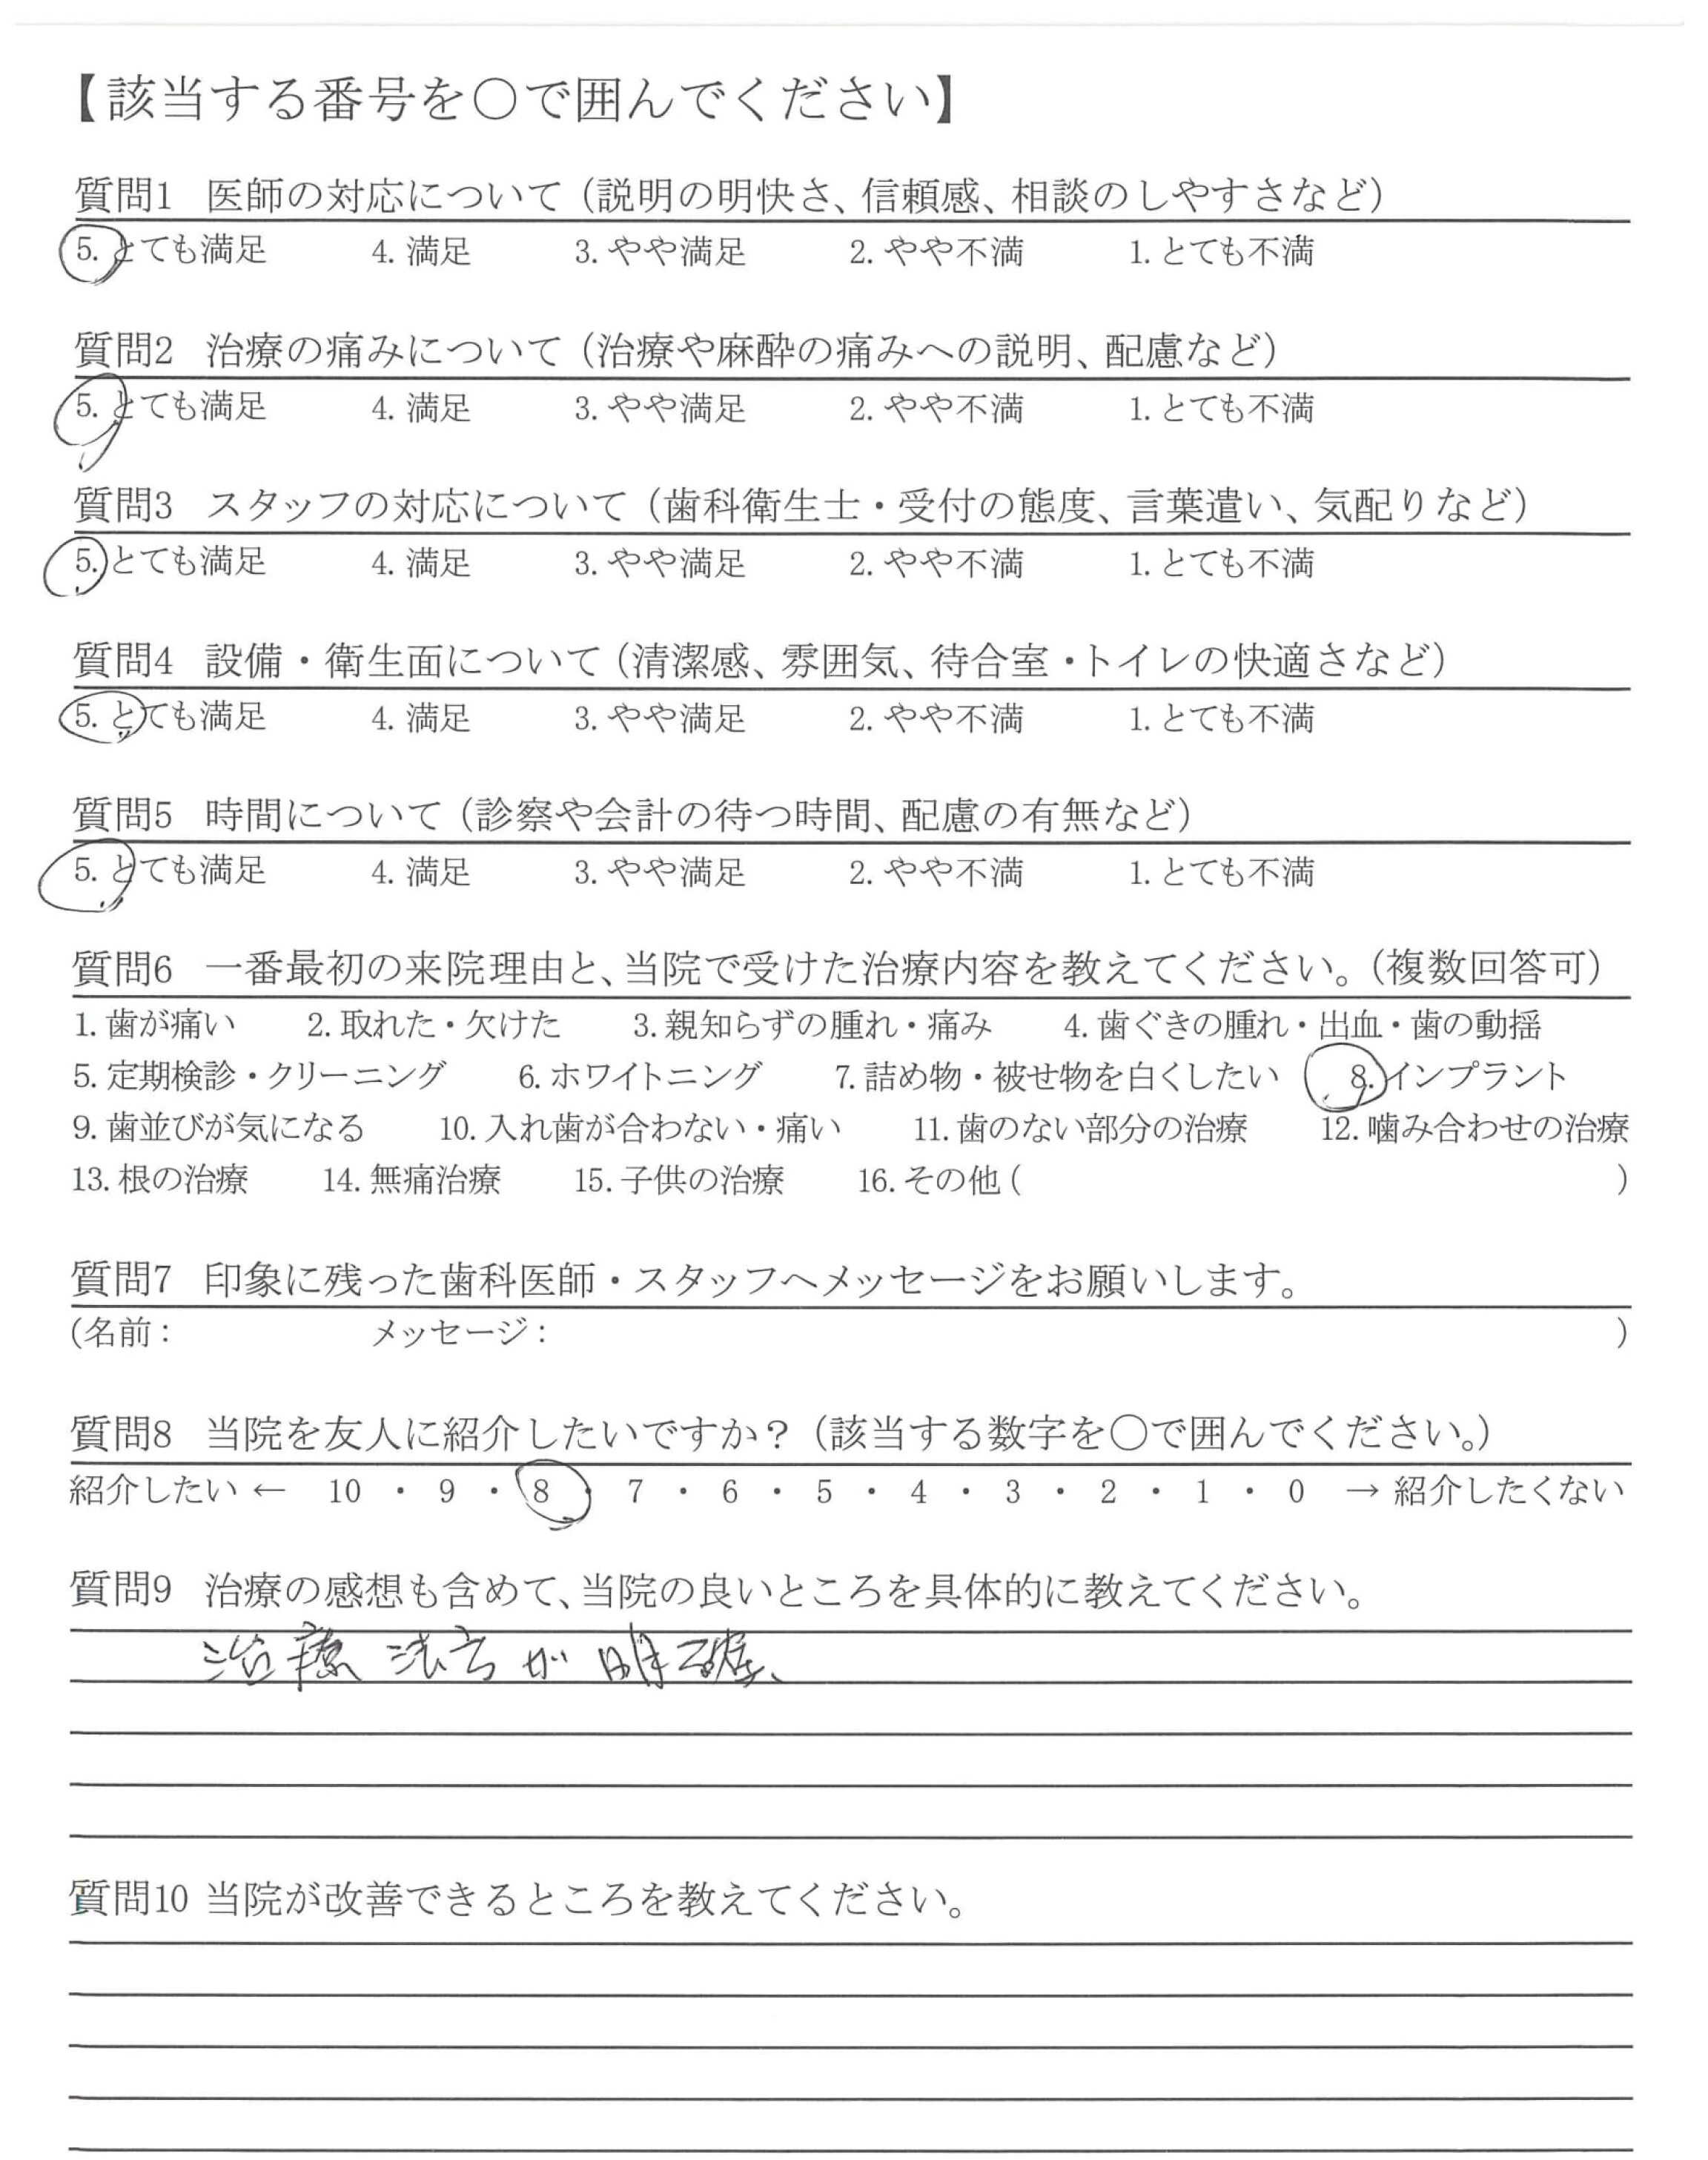 【該当する番号を〇で囲んでください】
質問1 医師の対応について（説明の明快さ、信頼感、相談のしやすさなど）
5. とても満足 4. 満足 3. やや満足 2. やや不満 1. とても不満
質問2 治療の痛みについて（治療や麻酔の痛みへの説明、配慮など）
5. とても満足 4. 満足 3. やや満足 2. やや不満 1. とても不満
質問3 スタッフの対応について（歯科衛生士・受付の態度、言葉遣い、気配りなど）
5. とても満足 4. 満足 3. やや満足 2. やや不満 1. とても不満
質問4 設備・衛生面について（清潔感、雰囲気、待合室・トイレの快適さなど）
5. とても満足 4. 満足 3. やや満足 2. やや不満 1. とても不満
質問5 時間について（診察や会計の待つ時間、配慮の有無など）
5. とても満足 4. 満足 3. やや満足 2. やや不満 1. とても不満
質問6 一番最初の来院理由と、当院で受けた治療内容を教えてください。（複数回答可）
1. 歯が痛い 2. 取れた・欠けた 3. 親知らずの腫れ・痛み 4. 歯ぐきの腫れ・出血・歯の動揺
5. 定期検診・クリーニング 6. ホワイトニング 7. 詰め物・被せ物を白くしたい 8. インプラント
9. 歯並びが気になる 10. 入れ歯が合わない・痛い 11. 歯のない部分の治療 12. 噛み合わせの治療
13. 根の治療 14. 無痛治療 15. 子供の治療 16. その他 ( )
質問7 印象に残った歯科医師・スタッフへメッセージをお願いします。
（名前： メッセージ： ）
質問8 当院を友人に紹介したいですか？（該当する数字を〇で囲んでください。）
紹介したい ← 10 ・ 9 ・ 8 ・ 7 ・ 6 ・ 5 ・ 4 ・ 3 ・ 2 ・ 1 ・ 0 → 紹介したくない
質問9 治療の感想も含めて、当院の良いところを具体的に教えてください。
治療法方が明確、
質問10 当院が改善できるところを教えてください。